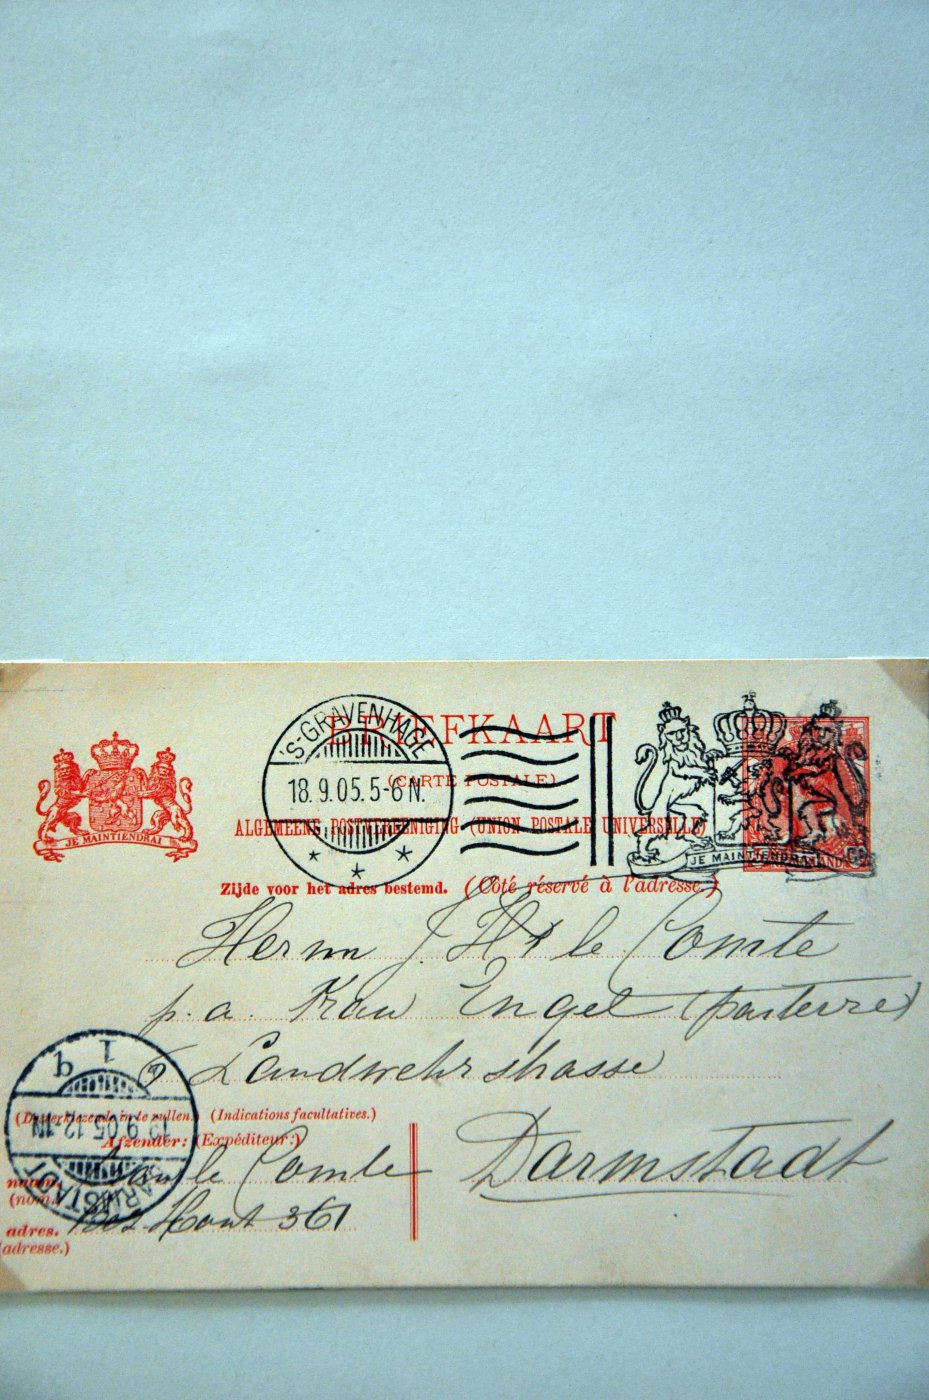 BRIEFKAART
'S-GRAVENHAGE
18.9.05.5-6N.
(CARTE POSTALE)
ALGEMEENE POSTVEREENIGING (UNION POSTALE UNIVERSELLE)
JE MAINTIENDRAI
JE MAINTIENDRAI
Zijde voor het adres bestemd. (Côté réservé à l'adresse.)
Herrn J. H. le Comte
p. a. Frau Engel (parterre)
Landwehrstrasse
Darmstadt
(Indications facultatives.)
Afzender: (Expéditeur:)
le Comte
naam.
(nom.)
adres. 361
(adresse.)
DARMSTADT
19.9.05.12-1N
1 b